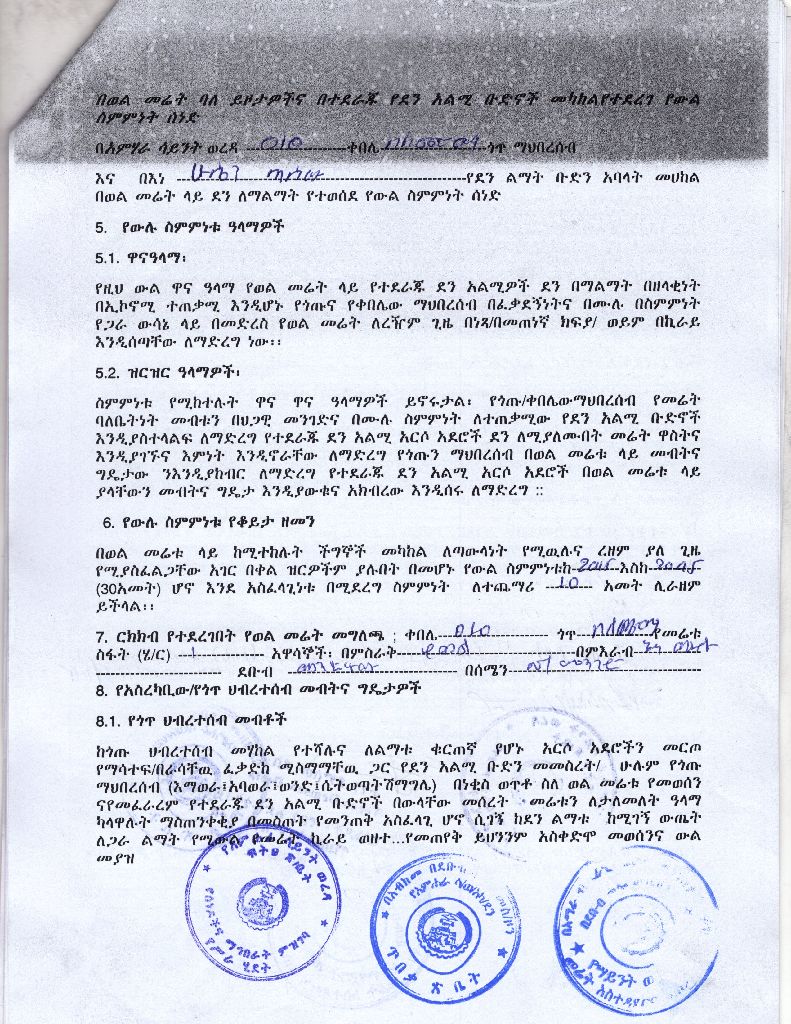 በወል መሬት ባለ ይዞታዎችና በተደራጁ የደን አልሚ ቡድኖች መካከልየተደረገ የውል
ስምምነት ሰነድ
በአምሃራ ሳይንት ወረዳ 010 ቀበሌ ጎጥ ማህበረሰብ
እና በእነ ሁሴን የደን ልማት ቡድን አባላት መሀከል
በወል መሬት ላይ ደን ለማልማት የተወሰደ የውል ስምምነት ሰነድ
5. የውሉ ስምምነቱ ዓላማዎች
5.1. ዋናዓላማ፡
የዚህ ውል ዋና ዓላማ የወል መሬት ላይ የተደራጁ ደን አልሚዎች ደን በማልማት በዘላቂነት
በኢኮኖሚ ተጠቃሚ እንዲሆኑ የጎጡና የቀበሌው ማህበረሰብ በፈቃደኝነትና በሙሉ በስምምነት
የጋራ ውሳኔ ላይ በመድረስ የወል መሬት ለረዥም ጊዜ በነጻ/በመጠነኛ ክፍያ/ ወይም በኪራይ
እንዲሰጣቸው ለማድረግ ነው፡፡
5.2. ዝርዝር ዓላማዎች፡
ስምምነቱ የሚከተሉት ዋና ዋና ዓላማዎች ይኖሩታል፡ የጎጡ/ቀበሌውማህበረሰብ የመሬት
ባለቤትነት መብቱን በህጋዊ መንገድና በሙሉ ስምምነት ለተጠቃሚው የደን አልሚ ቡድኖች
እንዲያስተላልፍ ለማድረግ የተደራጁ ደን አልሚ አርሶ አደሮች ደን ለሚያለሙበት መሬት ዋስትና
እንዲያገኙና እምነት እንዲኖራቸው ለማድረግ የጎጡን ማህበረሰብ በወል መሬቱ ላይ መብትና
ግዴታው ንእንዲያከብር ለማድረግ የተደራጁ ደን አልሚ አርሶ አደሮች በወል መሬቱ ላይ
ያላቸውን መብትና ግዴታ እንዲያውቁና አክብረው እንዲሰሩ ለማድረግ ::
6. የውሉ ስምምነቱ የቆይታ ዘመን
በወል መሬቱ ላይ ከሚተከሉት ችግኞች መካከል ለጣውላነት የሚዉሉና ረዘም ያለ ጊዜ
የሚያስፈልጋቸው አገር በቀል ዝርዎችም ያሉበት በመሆኑ የውል ስምምነቱከ 2015 እስከ 2045
(30አመት) ሆኖ እንደ አስፈላጊነቱ በሚደረግ ስምምነት ለተጨማሪ 10 አመት ሊራዘም
ይችላል፡፡
7. ርክክብ የተደረገበት የወል መሬት መግለጫ ; ቀበሌ 010 ጎጥ የመሬቱ
ስፋት (ሄ/ር) 1 አዋሳኞች፡ በምስራቅ በምእራብ
ደቡብ በሰሜን መንገድ
8. የአስረካቢው/የጎጥ ህብረተሰብ መብትና ግዴታዎች
8.1. የጎጥ ህብረተሰብ መብቶች
ከጎጡ ህብረተሰብ መሃከል የተሻሉና ለልማቱ ቁርጠኛ የሆኑ አርሶ አደሮችን መርጦ
የማሳተፍ/በራሳቸዉ ፈቃድከ ሚስማማቸዉ ጋር የደን አልሚ ቡድን መመስረት/ ሁሉም የጎጡ
ማህበረሰብ (እማወራ፤አባወራ፤ወንድ፤ሴትወጣትሽማግሌ) በነቂስ ወጥቶ ስለ ወል መሬቱ የመወሰን
ናየመፈራረም የተደራጁ ደን አልሚ ቡድኖች በውላቸው መሰረት መሬቱን ለታለመለት ዓላማ
ካላዋሉት ማስጠንቀቂያ በመስጠት የመንጠቅ አስፈላጊ ሆኖ ሲገኝ ከደን ልማቱ ከሚገኝ ውጤት
ለጋራ ልማት የሚውል የመሬት ኪራይ ወዘተ...የመጠየቅ ይህንንም አስቀድሞ መወሰንና ውል
መያዝ
የአምሃራ ሳይንት ወረዳ
ፍትህ ጽ/ቤት
ጥበቃ ጽ ቤት